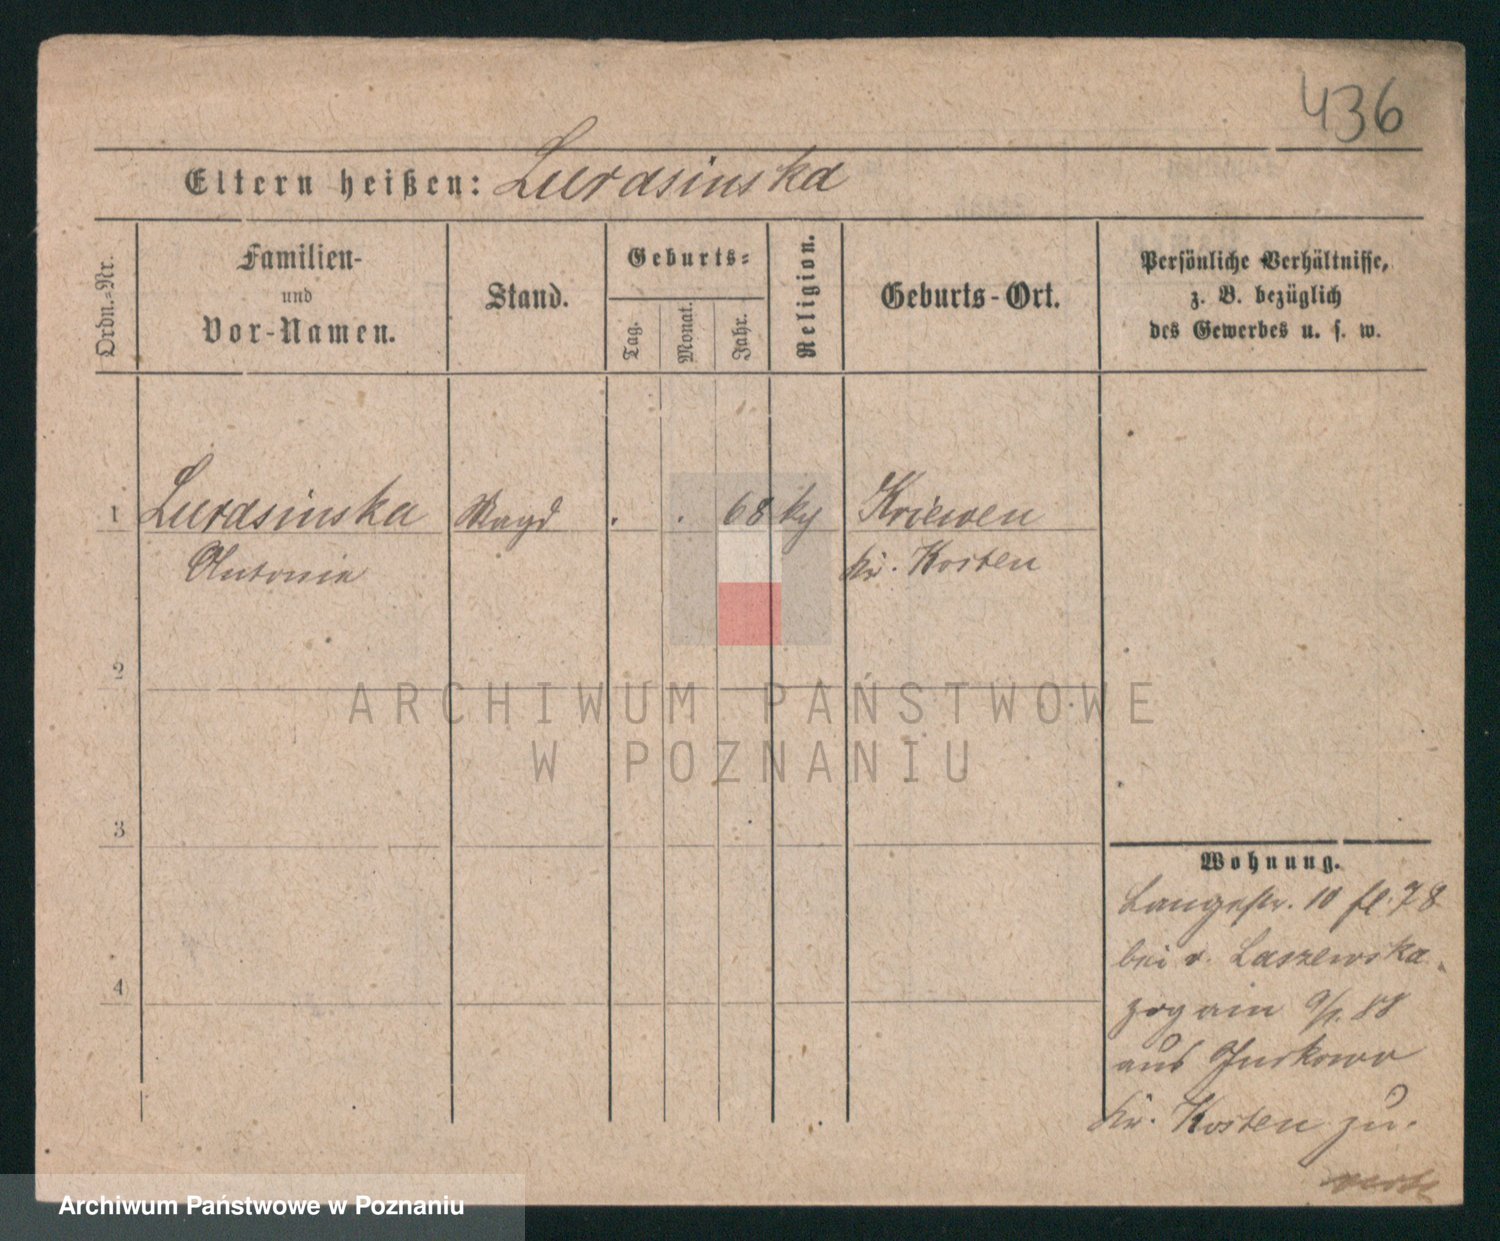 436
Eltern heißen: Lurasinska
Ordn.-Nr.
Familien-
und
Vor-Namen.
Stand.
Geburts-
Tag.
Monat.
Jahr.
Religion.
Geburts-Ort.
Persönliche Verhältnisse,
z. B. bezüglich
des Gewerbes u. s. w.
1 Lurasinska Magd . . 68 kg Kriewen
Antonie Kr. Kosten
2
3
4
Wohnung.
Langestr. 10 fl. 78
bei v. Laszewska
zog am 9/1. 88
aus Jurkowo
Kr. Kosten zu.
ARCHIWUM PAŃSTWOWE
W POZNANIU
Archiwum Państwowe w Poznaniu